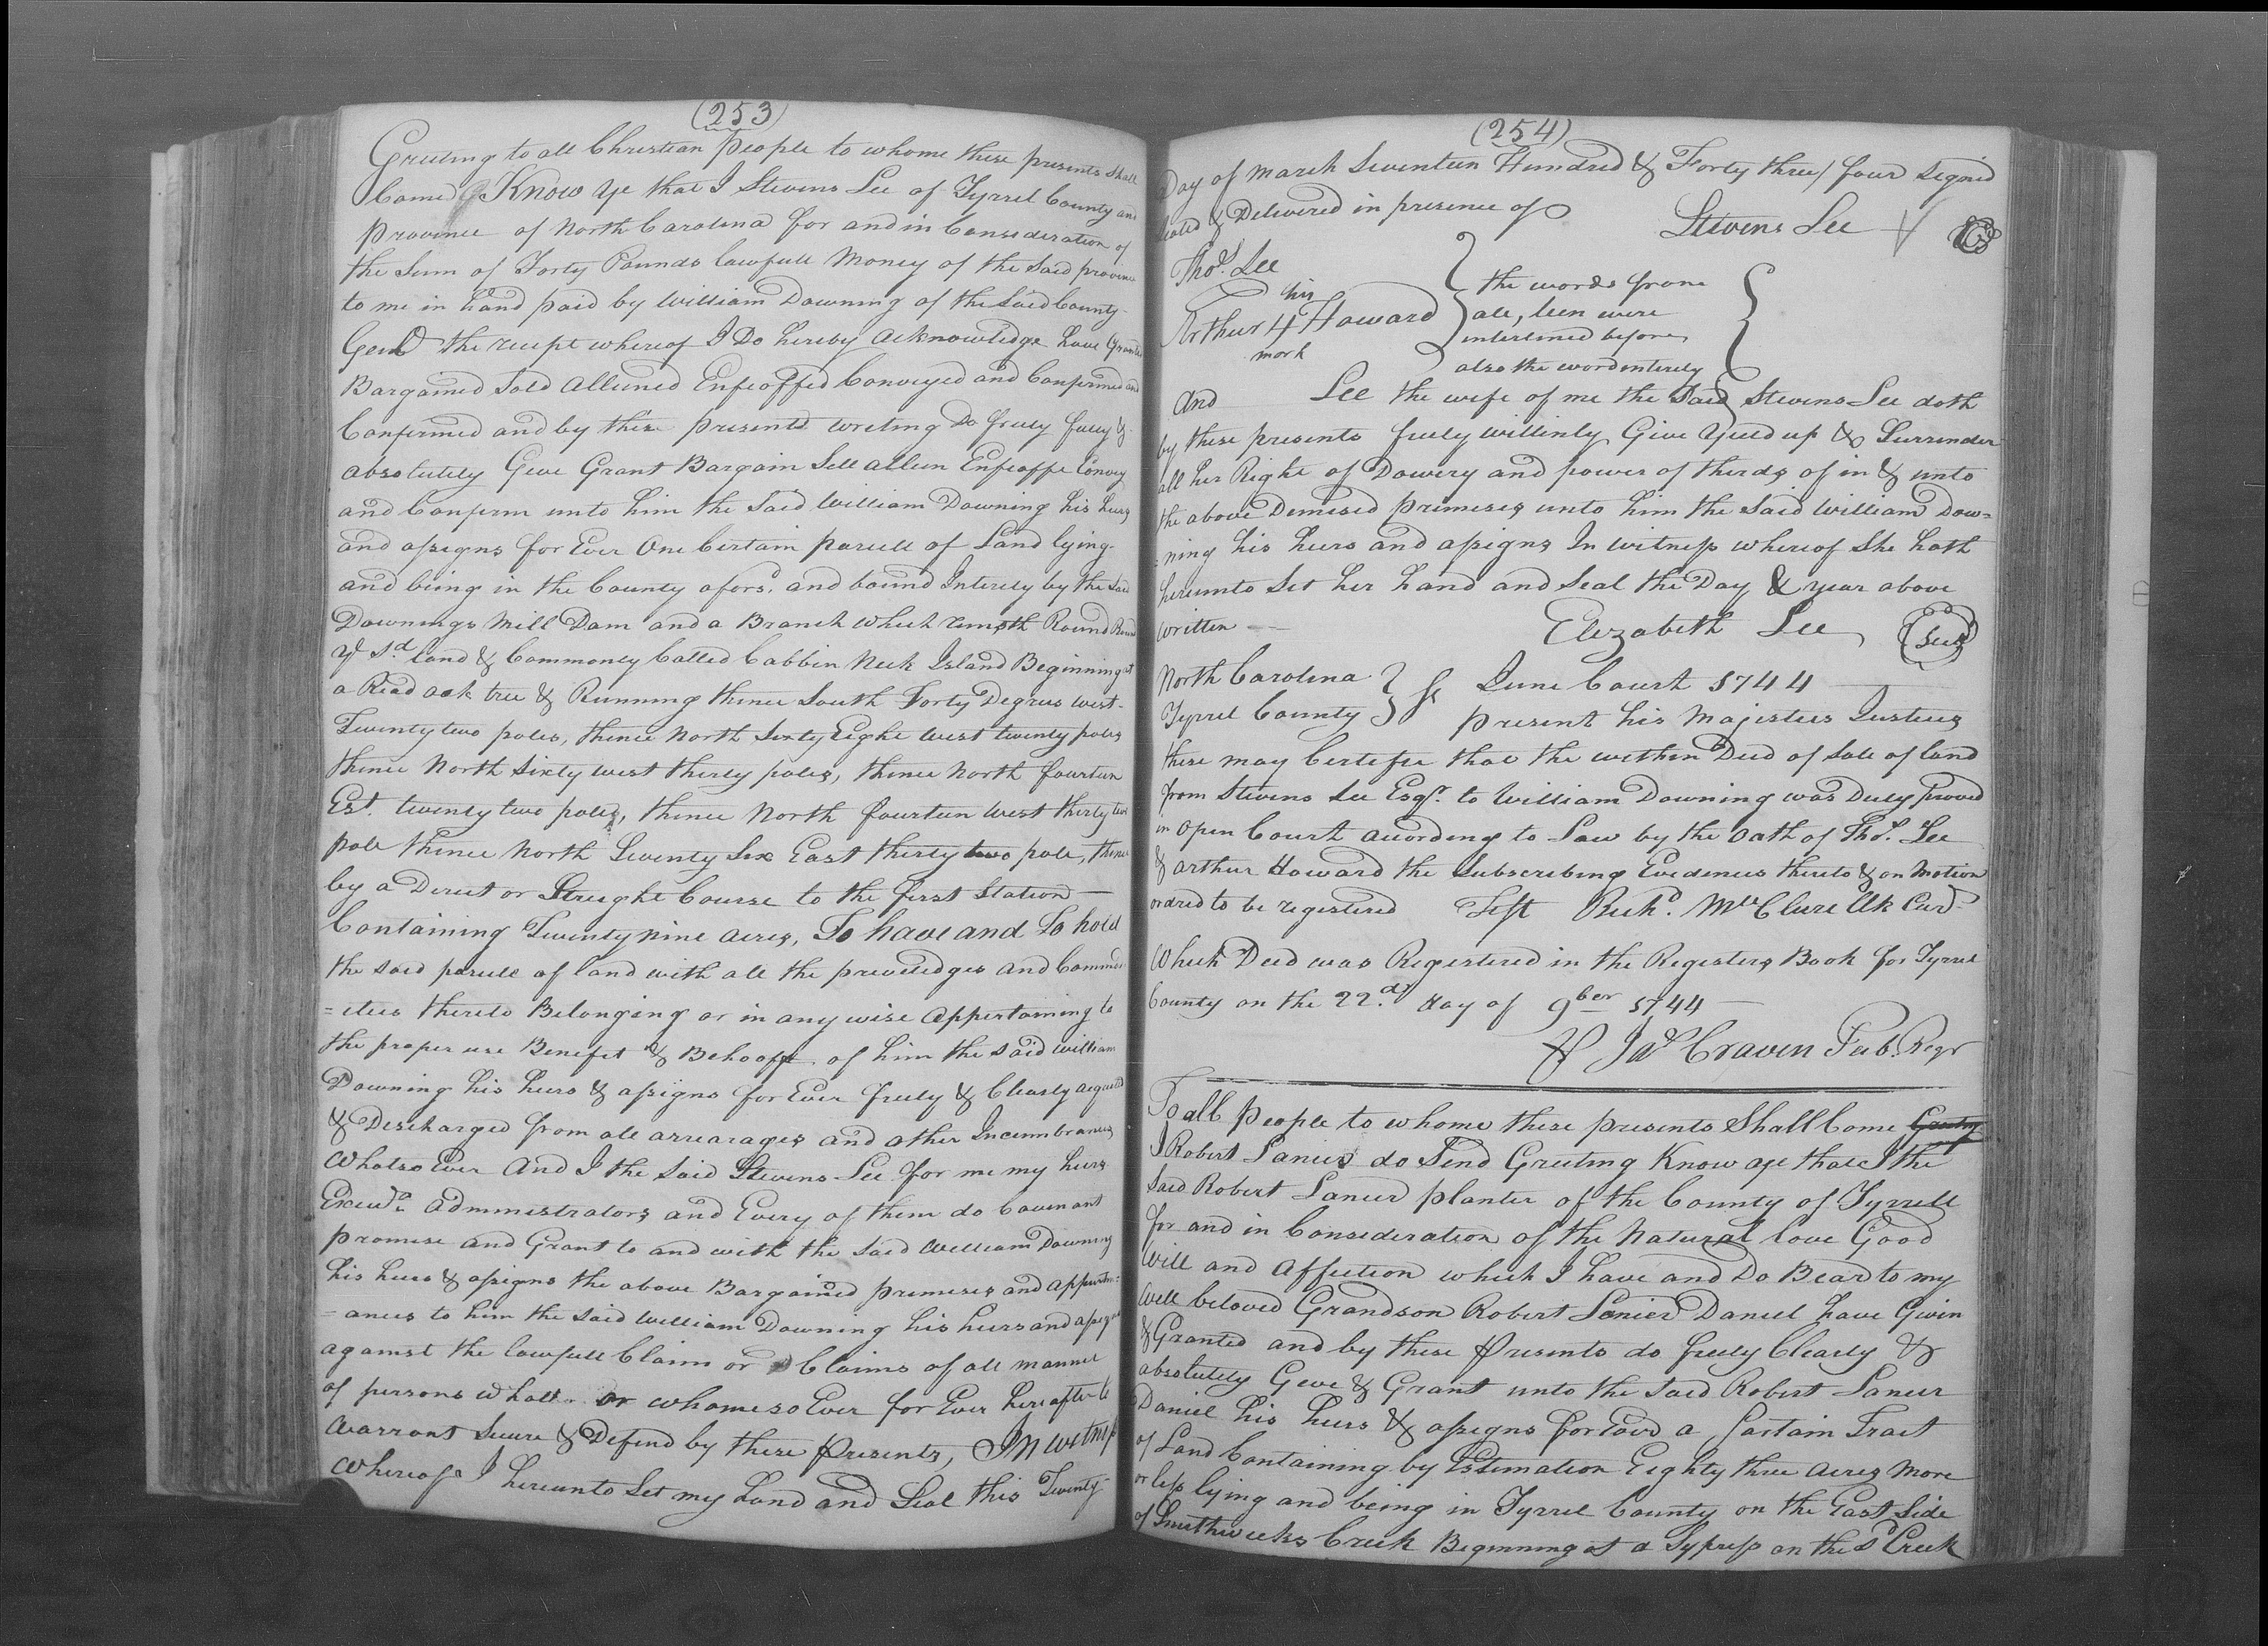 (253)
Greeting to all Christian people to whome these presents Shall
Come Know Ye that I Stevens Lee of Tyrrel County and
Province of North Carolina for and in Consideration of
the Sum of Forty Pounds lawfull Money of the Said province
to me in hand paid by William Downing of the Said County
Gent the receipt whereof I Do hereby acknowledge have Granted
Bargained Sold Alliened Enfeoffed Conveyed and Confirmed and
Confirmed and by these presents writing Do freely fully &
absolutely Give Grant Bargain Sell allien Enfeoffe Convey
and Confirm unto him the Said William Downing his heirs
and assigns for Ever One Certain parcell of Land lying
and being in the County afors.d and bound Interely by the Said
Downings Mill Dam and a Branch which runeth Round
ye s.d land & Commonly Called Cabbin Neck Island Beginning at
a Read oak tree & Running thence South Forty Degrees west
Twenty two poles, thence North Sixty Eight West twenty poles
thence North Sixty west thirty poles, thence North fourteen
Est. twenty two poles, thence North fourteen West thirty two
pole thence North Seventy Six East thirty two pole, thence
by a Direct or Streight Course to the first Station
Containing Twenty nine acres, To have and To hold
the said parcell of land with all the priveledges and Commod
=ities thereto Belonging or in any wise Appertaining to
the proper use Benefit & Behooffe of him the said William
Downing his heirs & assigns for Ever freely & Clearly acquitted
& Discharged from all arrearages and other Incumbrances
Whatso Ever And I the Said Stevens Lee for me my heirs
Execu.rs administrators and Every of them do Covenant
promise and Grant to and with the Said William Downing
his heirs & assigns the above Bargained premises and appurten=
=ances to him the Said William Downing his heirs and assigns
against the lawfull Claim or Claims of all manner
of persons what or whomeso Ever for Ever hereafter to
warrant Secure & Defend by these presents, In witness
whereof I hereunto Set my hand and Seal this Twenty
(254)
Day of march Seventeen Hundred & Forty three/four Signed
Sealed & Delivered in presence of
Stevens Lee
Tho.s Lee
his
Arthur H Howard
mark
the words from
all, lien were
interlined before
also the word interely
And Lee the wife of me the Said Stevens Lee doth
by these presents freely willinly Give Yield up & Surrender
all her Right of Dowery and power of thirds of in & unto
the above Demised premises unto him the Said William Dow=
=ning his heirs and assigns In witness whereof She hath
hereunto Set her hand and Seal the Day & year above
written
Elezabeth Lee (Seal)
North Carolina
Tyrrel County } ss June Court 1744
present his Majesties Justices
these may Certifie that the within Deed of Sale of land
from Stevens Lee Esq.r to William Downing was Duly proved
in open Court according to Law by the oath of Tho.s Lee
& arthur Howard the Subscribing Evidences thereto & on Motion
ordred to be registered Test Rich.d McClure Clk Cur
Which Deed was Registered in the Registers Book for Tyrrel
County on the 22.d day of 9ber 1744
Jas Craven Pub. Regr
To all People to whome these presents Shall Come Greeting
I Robert Lanier do Send Greeting Know age that I the
Said Robert Lanier planter of the County of Tyrrell
for and in Consideration of the Natural love Good
Will and Affection which I have and Do Bear to my
Well beloved Grandson Robert Lanier Daniel have Givin
& Granted and by these Presents do freely Clearly &
absolutely Give & Grant unto the Said Robert Lanier
Daniel his heirs & assigns for Ever a Sartain Tract
of Land Containing by Estimation Eighty three acres More
or less lying and being in Tyrrel County on the East Side
of Smithwicks Creek Beginning at a Sypress on the Sd Creek